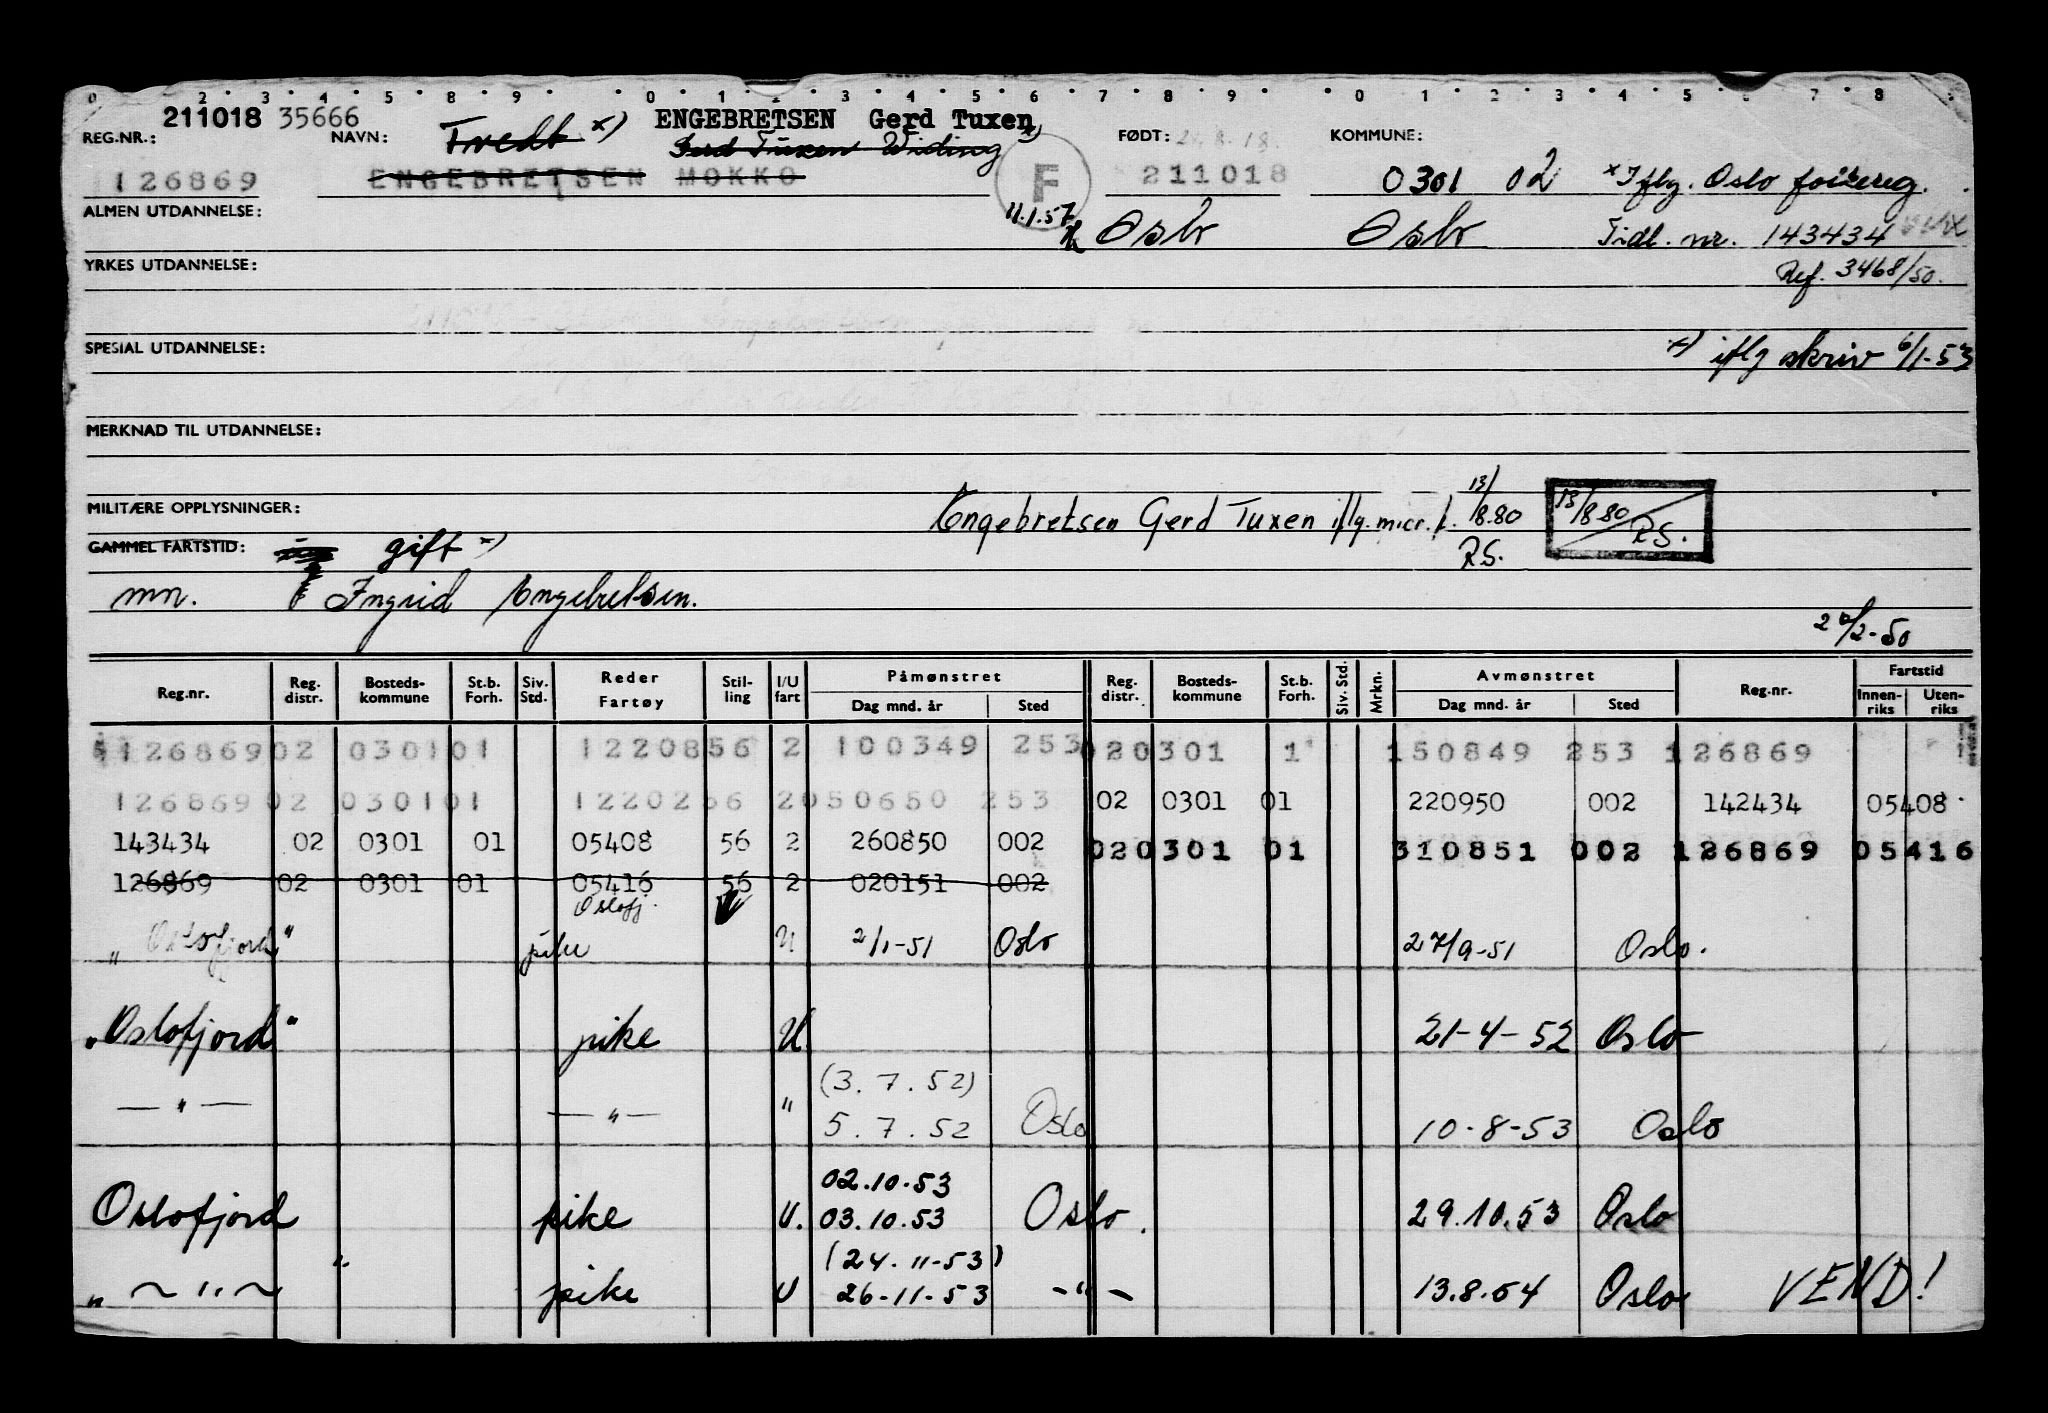 0 2 3 4 5 8 9 0 1 2 3 4 5 6 7 8 9 0 1 2 3 4 5 6 7 8
211018 35666 ENGEBRETSEN Gerd Tuxen
REG.NR.: NAVN: Tvedt x) Gerd Tuxen Widing x) FØDT: 21.8.18 KOMMUNE:
126869 ENGEBRETSEN MOKKO F 211018 0301 02 x Iflg. Oslo folkereg.
ALMEN UTDANNELSE: 11.1.57 Oslo Oslo Tidl. nr. 143434
YRKES UTDANNELSE: Ref. 3468/50.
SPESIAL UTDANNELSE: x) iflg skriv 6/1-53
MERKNAD TIL UTDANNELSE:
MILITÆRE OPPLYSNINGER: Engebretsen Gerd Tuxen iflg. micr. k. 13/8.80 RS. 13/8.80 RS.
GAMMEL FARTSTID: gift x)
mn. Ingrid Engebretsen.
20/2-50
Reg.nr. Reg. distr. Bosteds-kommune St.b. Forh. Siv. Std. Reder Fartøy Stil-ling I/U fart Påmønstret Dag mnd. år Sted Reg. distr. Bosteds-kommune St.b. Forh. Siv. Std. Mrkn. Avmønstret Dag mnd. år Sted Reg.nr. Fartstid Innen-riks Uten-riks
126869 02 0301 01 12208 56 2 100349 253 02 0301 1 150849 253 126869
126869 02 0301 01 12202 56 2 050650 253 02 0301 01 220950 002 142434 05408
143434 02 0301 01 05408 56 2 260850 002 02 0301 01 310851 002 126869 05416
126869 02 0301 01 05416 56 2 020151 002
Oslofj.
"Oslofjord" pike U 2/1-51 Oslo 27/9-51 Oslo.
"Oslofjord" pike U. 21-4-52 Oslo
(3.7.52)
— " — — " — " 5.7.52 Oslo 10-8-53 Oslo
02.10.53
Oslofjord pike U. 03.10.53 Oslo. 29.10.53 Oslo
(24.11-53)
" ~ " ~ " pike U 26-11-53 - " - 13.8.54 Oslo VEND!